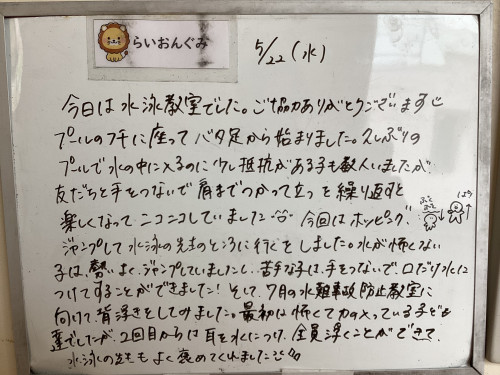 らいおんぐみ
5/22 (水)
今日は水泳教室でした。ご協力ありがとうございます
プールのフチに座ってバタ足から始まりました。久しぶりの
プールで水の中に入るのに少し抵抗がある子も数人いましたが、
友だちと手をつないで肩までつかって立つを繰り返すと
楽しくなってニコニコしていました 今回はホッピング、
ジャンプして水泳の先生のところに行くをしました。水が怖くない
子は、勢いよくジャンプしていましたし、苦手な子は、手をつないで、口だけ水に
つけてすることができました! そして、7月の水難事故防止教室に
向けて、背浮きをしてみました。最初は怖くて力の入っている子ども
達でしたが、2回目からは耳を水につけ、全員浮くことができて、
水泳の先生もよく褒めてくれました